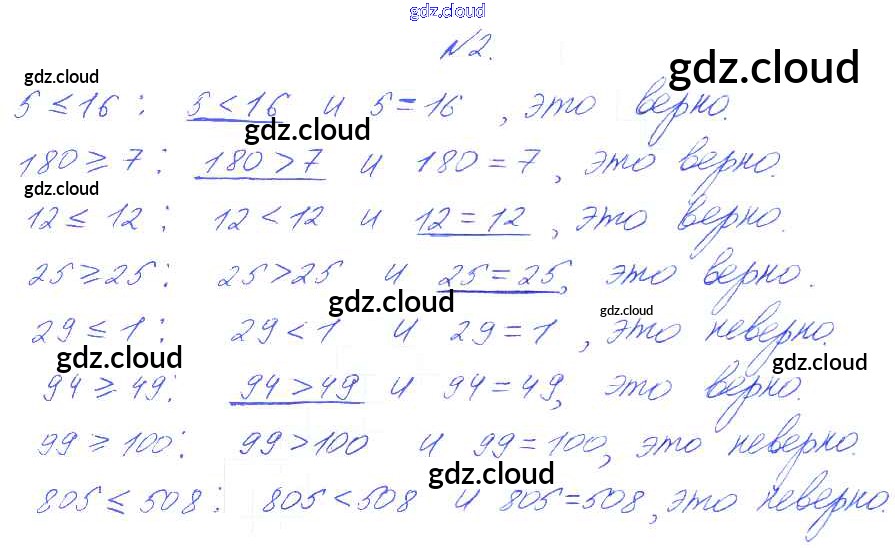 gdz.cloud
№2.
gdz.cloud
gdz.cloud
5 ≤ 16 : 5 < 16 и 5 = 16, это верно.
gdz.cloud
180 ≥ 7 : 180 > 7 и 180 = 7, это верно.
gdz.cloud
12 ≤ 12 : 12 < 12 и 12 = 12, это верно.
25 ≥ 25 : 25 > 25 и 25 = 25, это верно.
gdz.cloud
gdz.cloud
29 ≤ 1 : 29 < 1 и 29 = 1, это неверно.
gdz.cloud
gdz.cloud
94 ≥ 49 : 94 > 49 и 94 = 49, это верно.
99 ≥ 100 : 99 > 100 и 99 = 100, это неверно.
gdz.cloud
805 ≤ 508 : 805 < 508 и 805 = 508, это неверно.